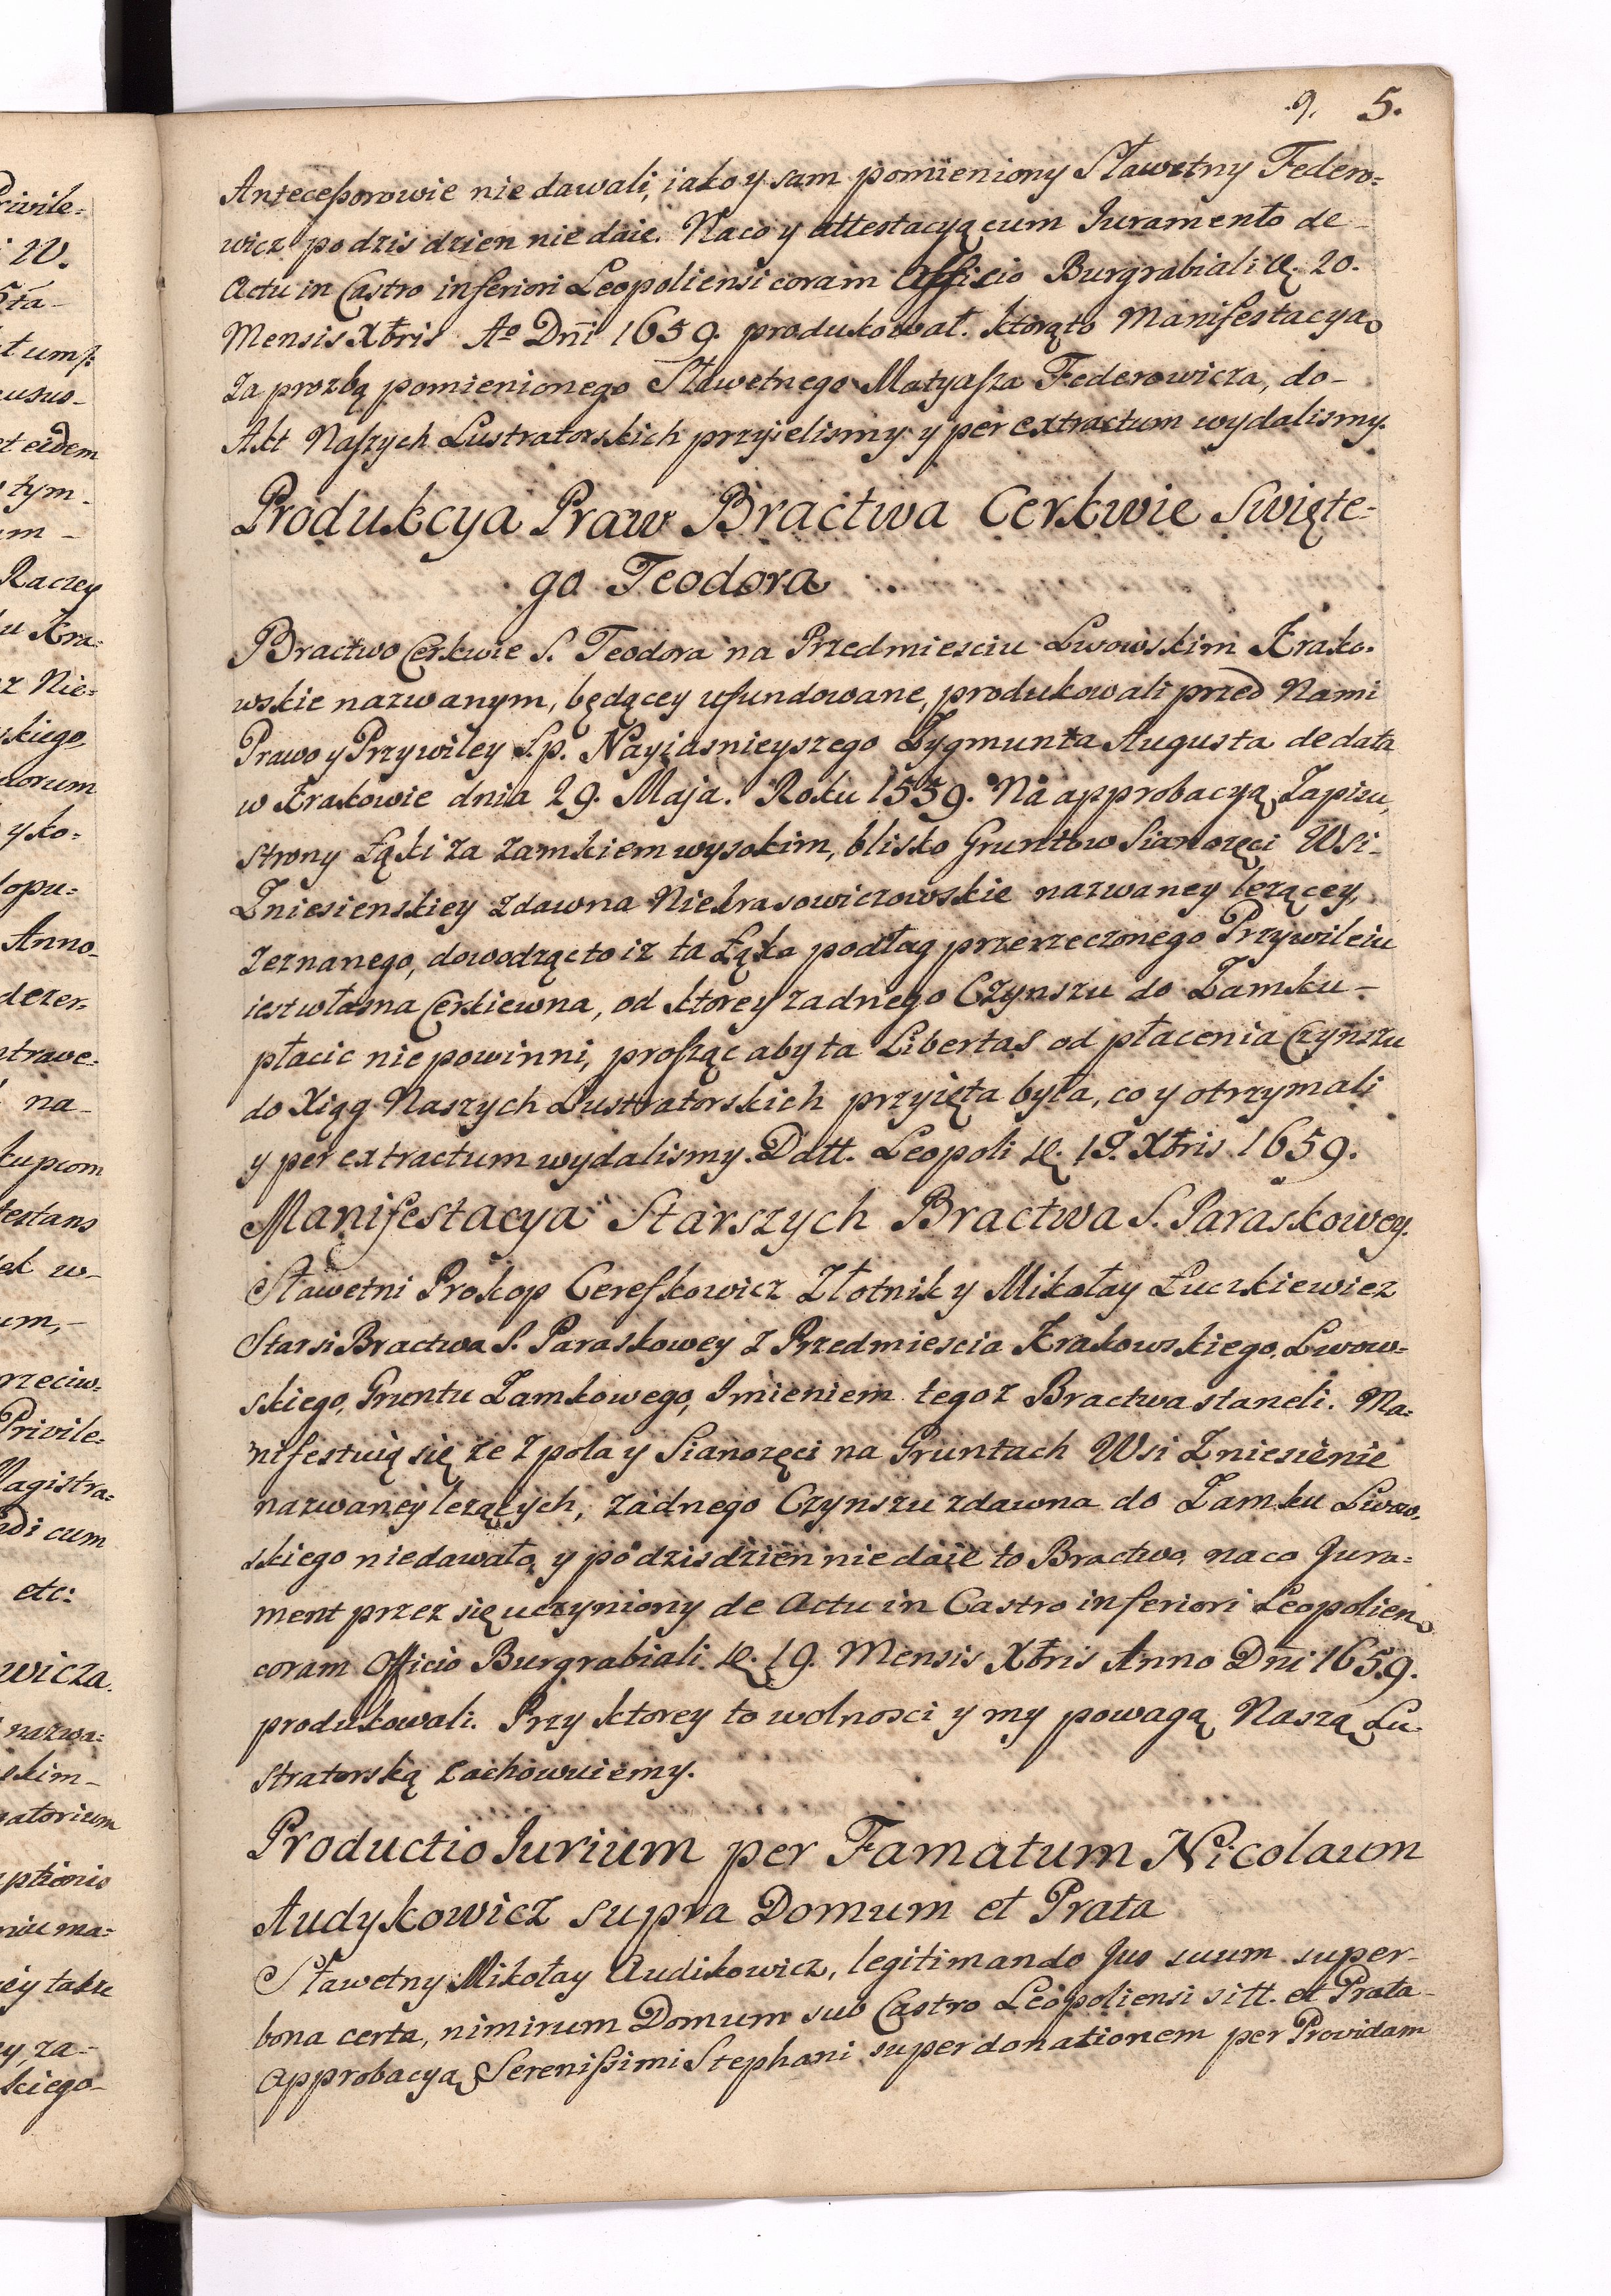 9. 5.
Anteceßorowie nie dawali, iako y sam pomieniony Sławetny Federo=
wicz po dzis dzien nie daie. Na co y attestacyą cum Iuramento de
Actu in Castro inferiori Leopoliensi coram Officio Burgrabiali 20.
Mensis Xbris Ao Dni 1659. produkował. ktorąto Manifestacyą
za prozbą pomienionego Sławetnego Matyaſza Federowicza, do-
Akt Naſzych Lustratorskich przyielismy y per extractum wydalismy.
Produkcya Praw Bractwa Cerkwie Swięte=
go Teodora
Bractwo Cerkwie S. Teodora na Przedmiesciu Lwowskim Krako=
wskie nazwanym, będącey ufundowane, produkowali przed Nami
Prawo y Przywiley S.p. Nayiasnieyszego Zygmunta Augusta de data
w Krakowie dnia 29. Maja. Roku 1559. Na approbacyą Zapisu,
strony Łąki za zamkiem wysokim, blisko Gruntow Sianozęci Wsi-
Zniesienskiey zdawna Niekrasowiczowskie nazwaney lezącey,
zeznanego, dowodząc to iz ta Łąka podług przerzeczonego Przywileiu
iest własna Cerkiewna, od ktorey zadnego Czynszu do Zamku-
płacic nie powinni, proſząc aby ta Libertas od płacenia Czynszu
do Xiąg Naszych Lustratorskich przyięta była, co y otrzymali
y per extractum wydalismy. Datt. Leopoli 19. Xbris 1659.
Manifestacya Starszych Bractwa S. Paraskowey.
Sławetni Prokop Cereſkowicz Złotnik y Mikołay Łuczkiewicz
Starsi Bractwa S. Paraskowey z Przedmiescia Krakowskiego, Lwow=
skiego, Gruntu Zamkowego, Imieniem tegoz Bractwa staneli. Ma=
nifestuią się ze z pola y Sianozęci na Gruntach Wsi Zniesienie
nazwaney lezących, zadnego Czynszu zdawna do Zamku Lwow,
skiego niedawało, y po dzis dzien nie daie to Bractwo, na co Jura=
ment przez się uczyniony de Actu in Castro inferiori Leopolien,
coram Officio Burgrabiali 19. Mensis Xbris Anno Dni 1659.
produkowali. Przy ktorey to wolnosci y my powagą Naszą Lu-
stratorską zachowuiemy.
Productio Iurium per Famatum Nicolaum
Audykowicz supra Domum et Prata
Sławetny Mikołay Audikowicz, legitimando Jus suum super-
bona certa, nimirum Domum sub Castro Leopoliensi sitt. et Prata-
Approbacyą Sereniſsimi Stephani super donationem per Providam